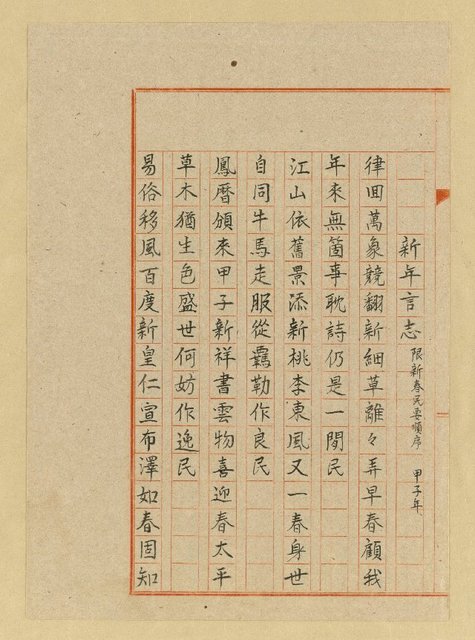 新年言志 限新春民要順序 甲子年
律回萬象競翻新細草離々弄早春顧我
年來無箇事耽詩仍是一閒民
江山依舊景添新桃李東風又一春身世
自同牛馬走服從羈勒作良民
鳳曆頒來甲子新祥書雲物喜迎春太平
草木猶生色盛世何妨作逸民
易俗移風百度新皇仁宣布澤如春固知